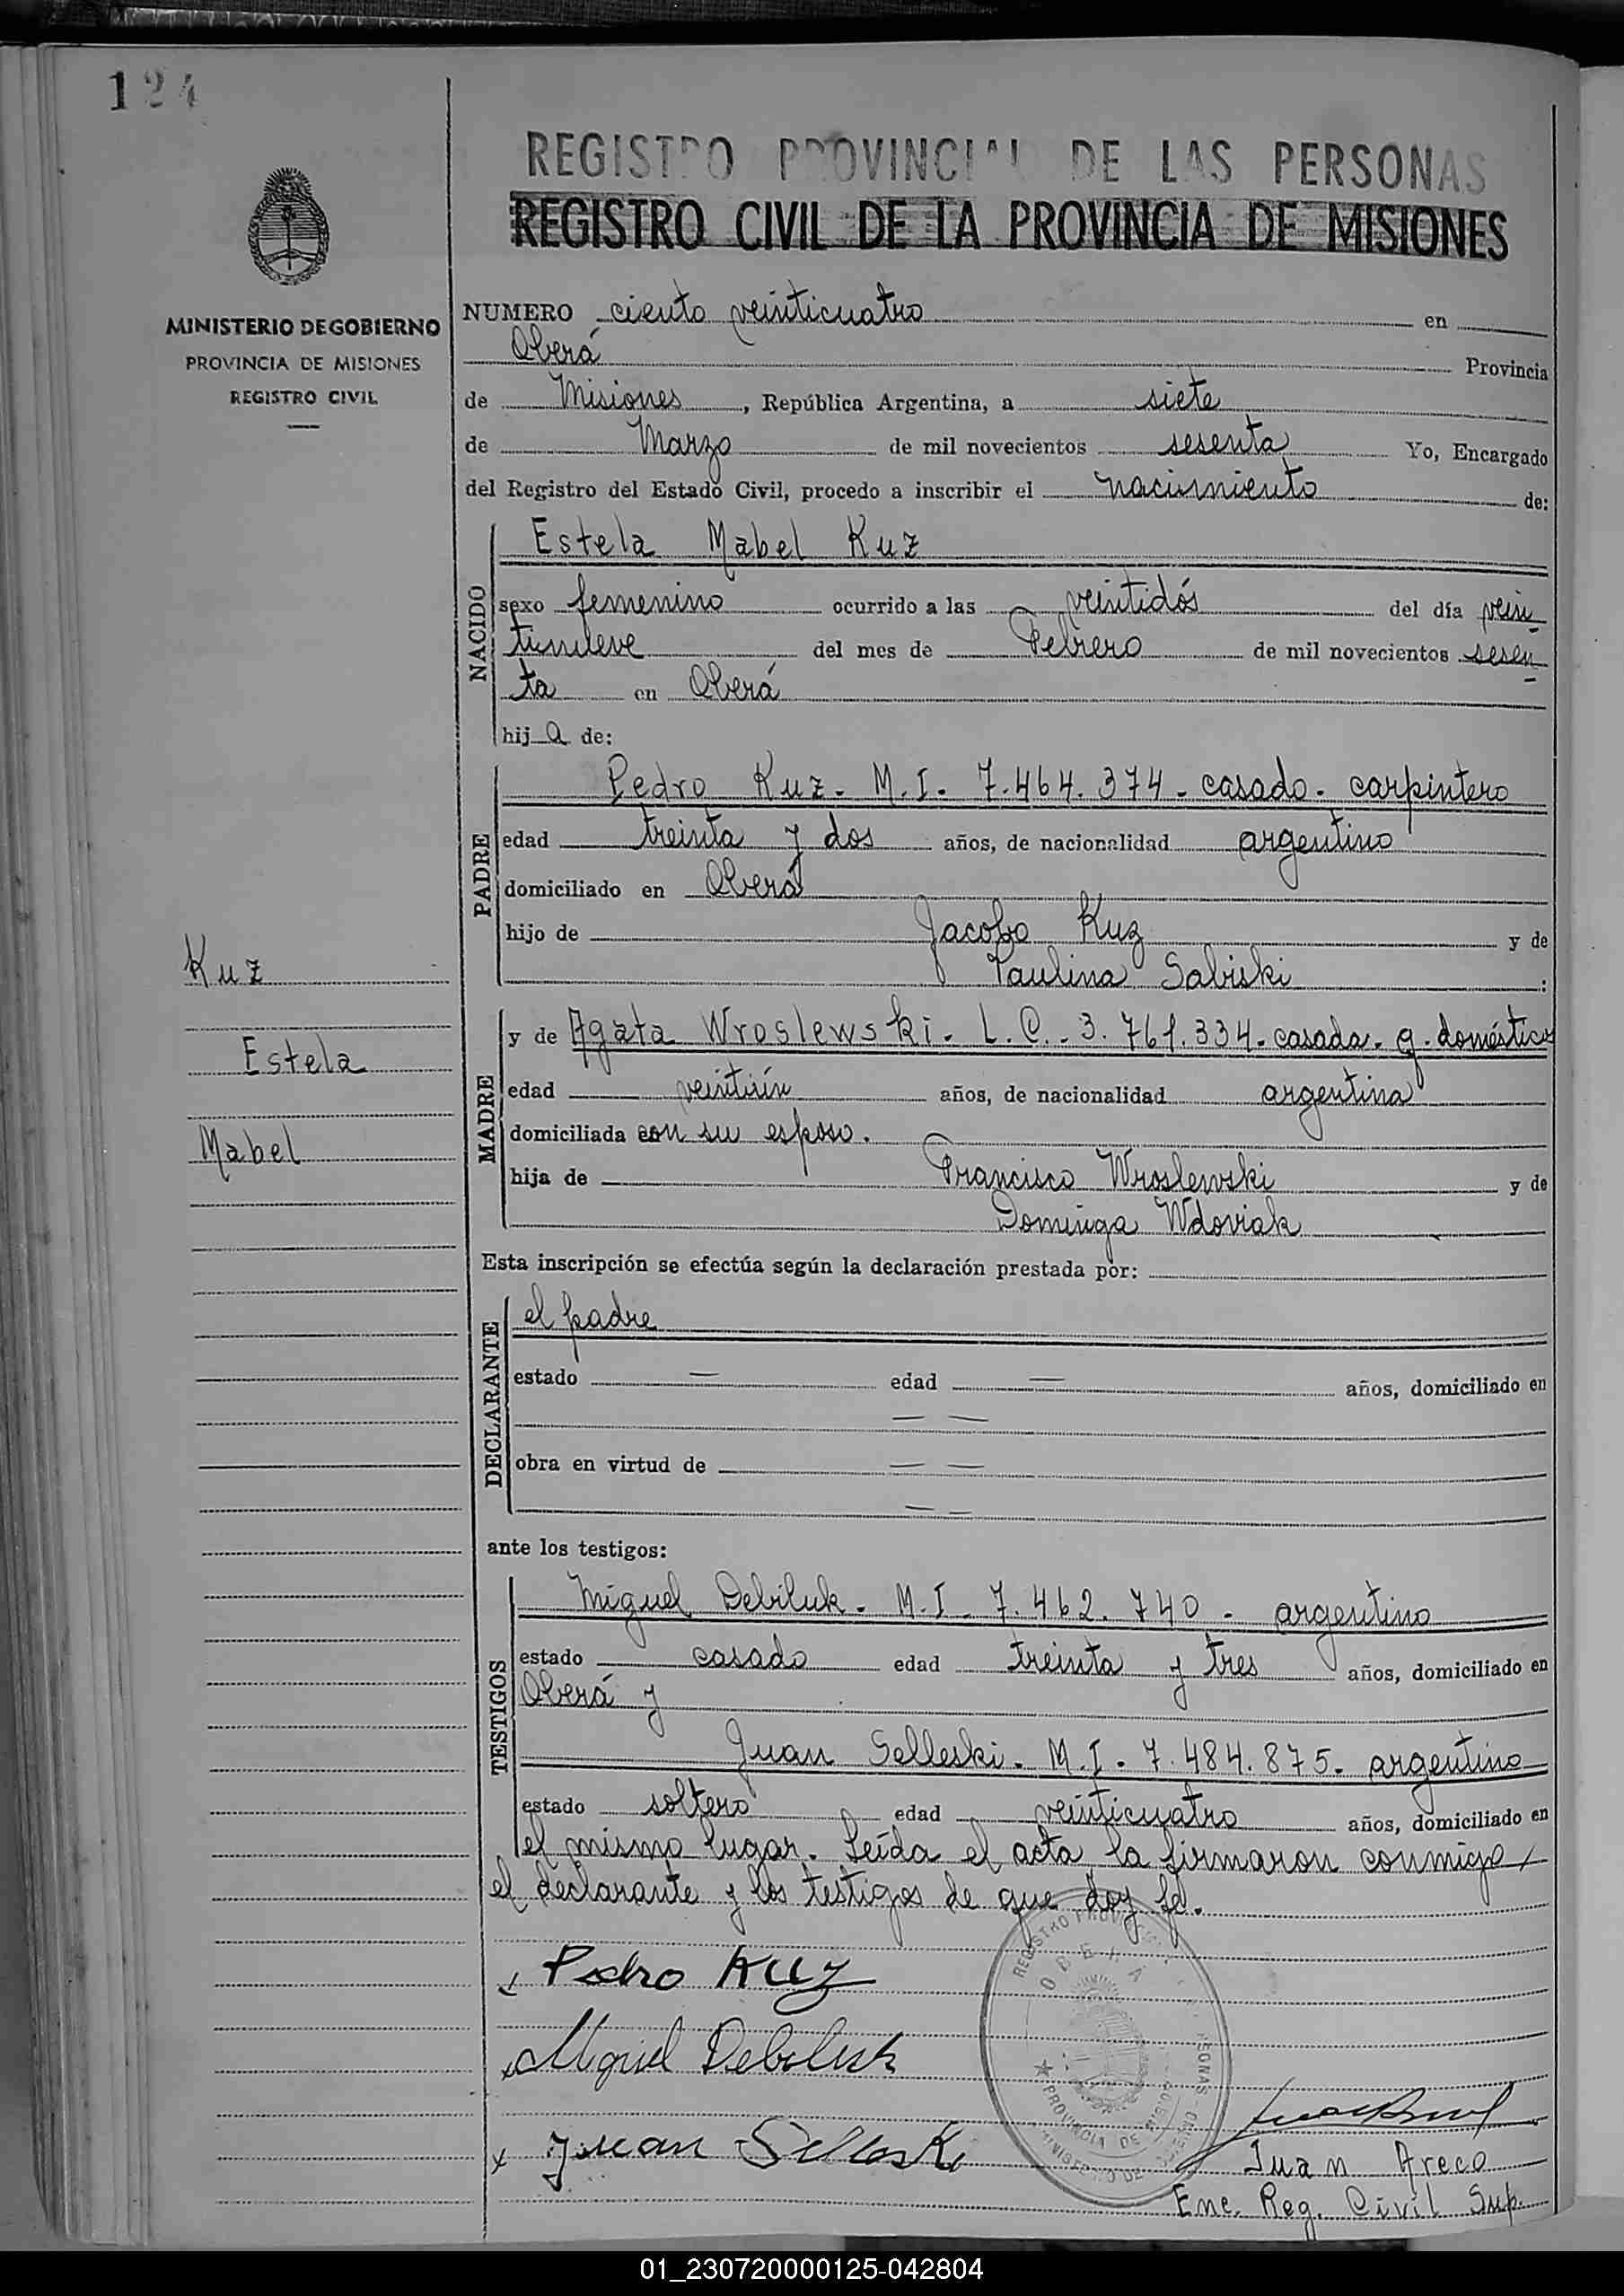 124
REGISTRO PROVINCIAL DE LAS PERSONAS
REGISTRO CIVIL DE LA PROVINCIA DE MISIONES
MINISTERIO DE GOBIERNO
PROVINCIA DE MISIONES
REGISTRO CIVIL
NUMERO ciento veinticuatro en
Oberá Provincia
de Misiones, República Argentina, a siete
de Marzo de mil novecientos sesenta Yo, Encargado
del Registro del Estado Civil, procedo a inscribir el nacimiento de:
NACIDO
Estela Mabel Kuz
sexo femenino ocurrido a las veintidós del día vein
tinueve del mes de Febrero de mil novecientos sesen
ta en Oberá
hija de:
PADRE
Pedro Kuz. M. I. 7.464.374 - casado. carpintero
edad treinta y dos años, de nacionalidad argentino
domiciliado en Oberá
hijo de Jacobo Kuz y de
Paulina Sabiski :
Kuz
Estela
Mabel
MADRE
y de Agata Wroslewski. L. C. 3.761.334. casada. q. domésticos
edad veintiún años, de nacionalidad argentina
domiciliada con su esposo.
hija de Francisco Wroslewski y de
Dominga Wdoviak
Esta inscripción se efectúa según la declaración prestada por:
DECLARANTE
el padre
estado — edad — años, domiciliado en
— —
obra en virtud de — —
— —
ante los testigos:
TESTIGOS
Miguel Debiluk. M. I. 7.462.740 - argentino
estado casado edad treinta y tres años, domiciliado en
Oberá y
Juan Selleski. M. I. 7.484.875. argentino
estado soltero edad veinticuatro años, domiciliado en
el mismo lugar. Leída el acta la firmaron conmigo,
el declarante y los testigos de que doy fé.
x Pedro Kuz
x Miguel Debiluk
x Juan Selleski
REGISTRO PROVINCIAL
OBERA
PROVINCIA DE
Juan Areco
Enc. Reg. Civil Sup.
01_230720000125-042804